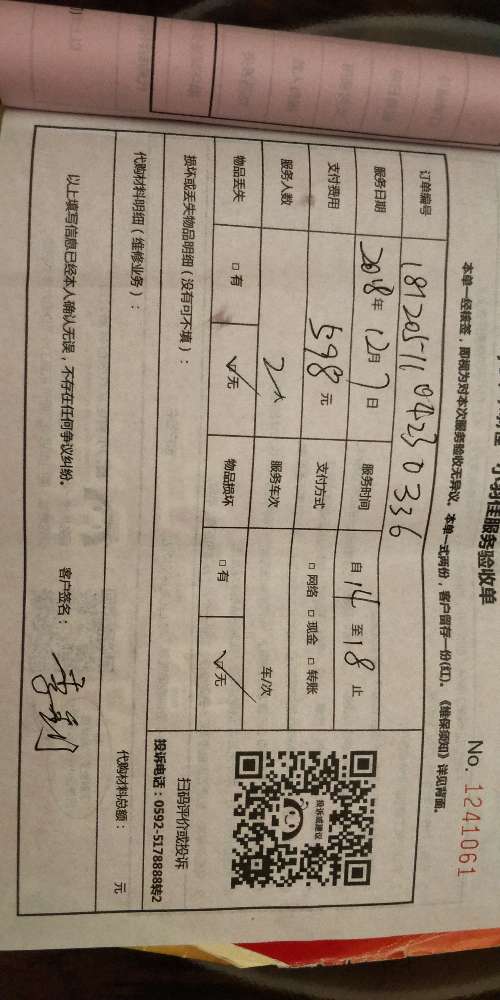 佳服务验收单
No. 1241061
本单一经核签，即视为对本次服务验收无异议。本单一式两份，客户留存一份(红)。《维保须知》详见背面。
订单编号 1812051104230336
服务日期 2018年12月7日 服务时间 自14至18止
支付费用 598元 支付方式 □ 网络 □ 现金 □ 转账
服务人数 2人 服务车次 车/次
物品丢失 □ 有 ☑ 无 物品损坏 □ 有 ☑ 无
投诉或建议
扫码评价或投诉
投诉电话：0592-5178888转2
损坏或丢失物品明细（没有可不填）：
代购材料明细（维修业务）： 代购材料总额： 元
以上填写信息已经本人确认无误，不存在任何争议纠纷。 客户签名：